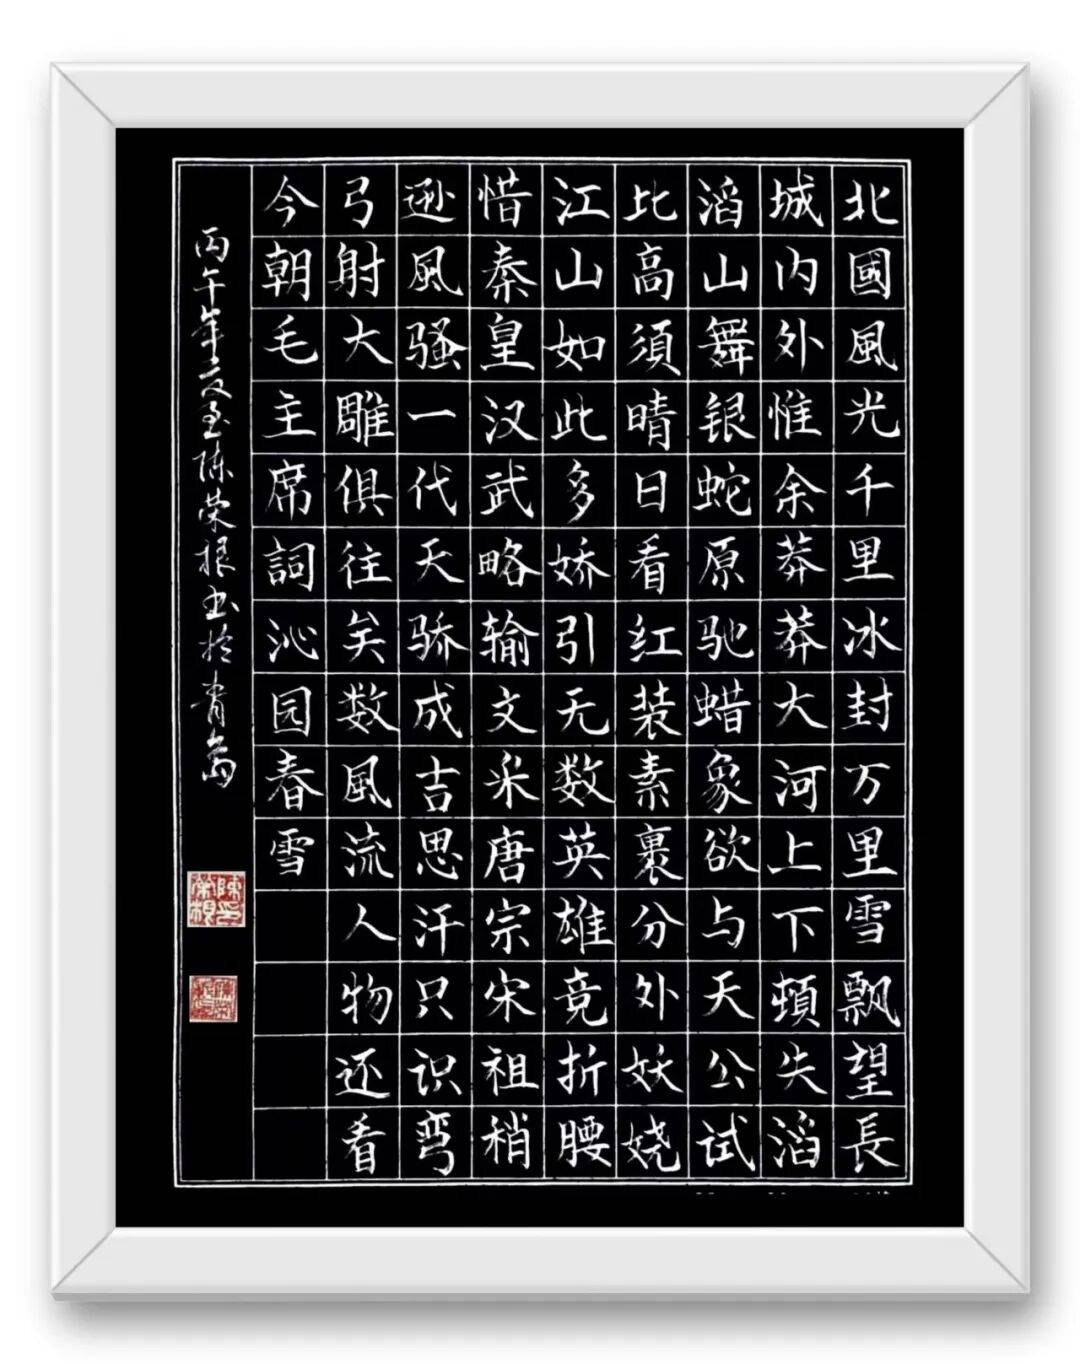 北國風光千里冰封万里雪飘望長
城内外惟余莽莽大河上下頓失滔
滔山舞银蛇原驰蜡象欲与天公试
比高須晴日看红装素裹分外妖娆
江山如此多娇引无数英雄竞折腰
惜秦皇汉武略输文采唐宗宋祖稍
逊風骚一代天骄成吉思汗只识弯
弓射大雕俱往矣数風流人物还看
今朝毛主席詞沁园春雪
丙午年夏至陈荣根书於青岛